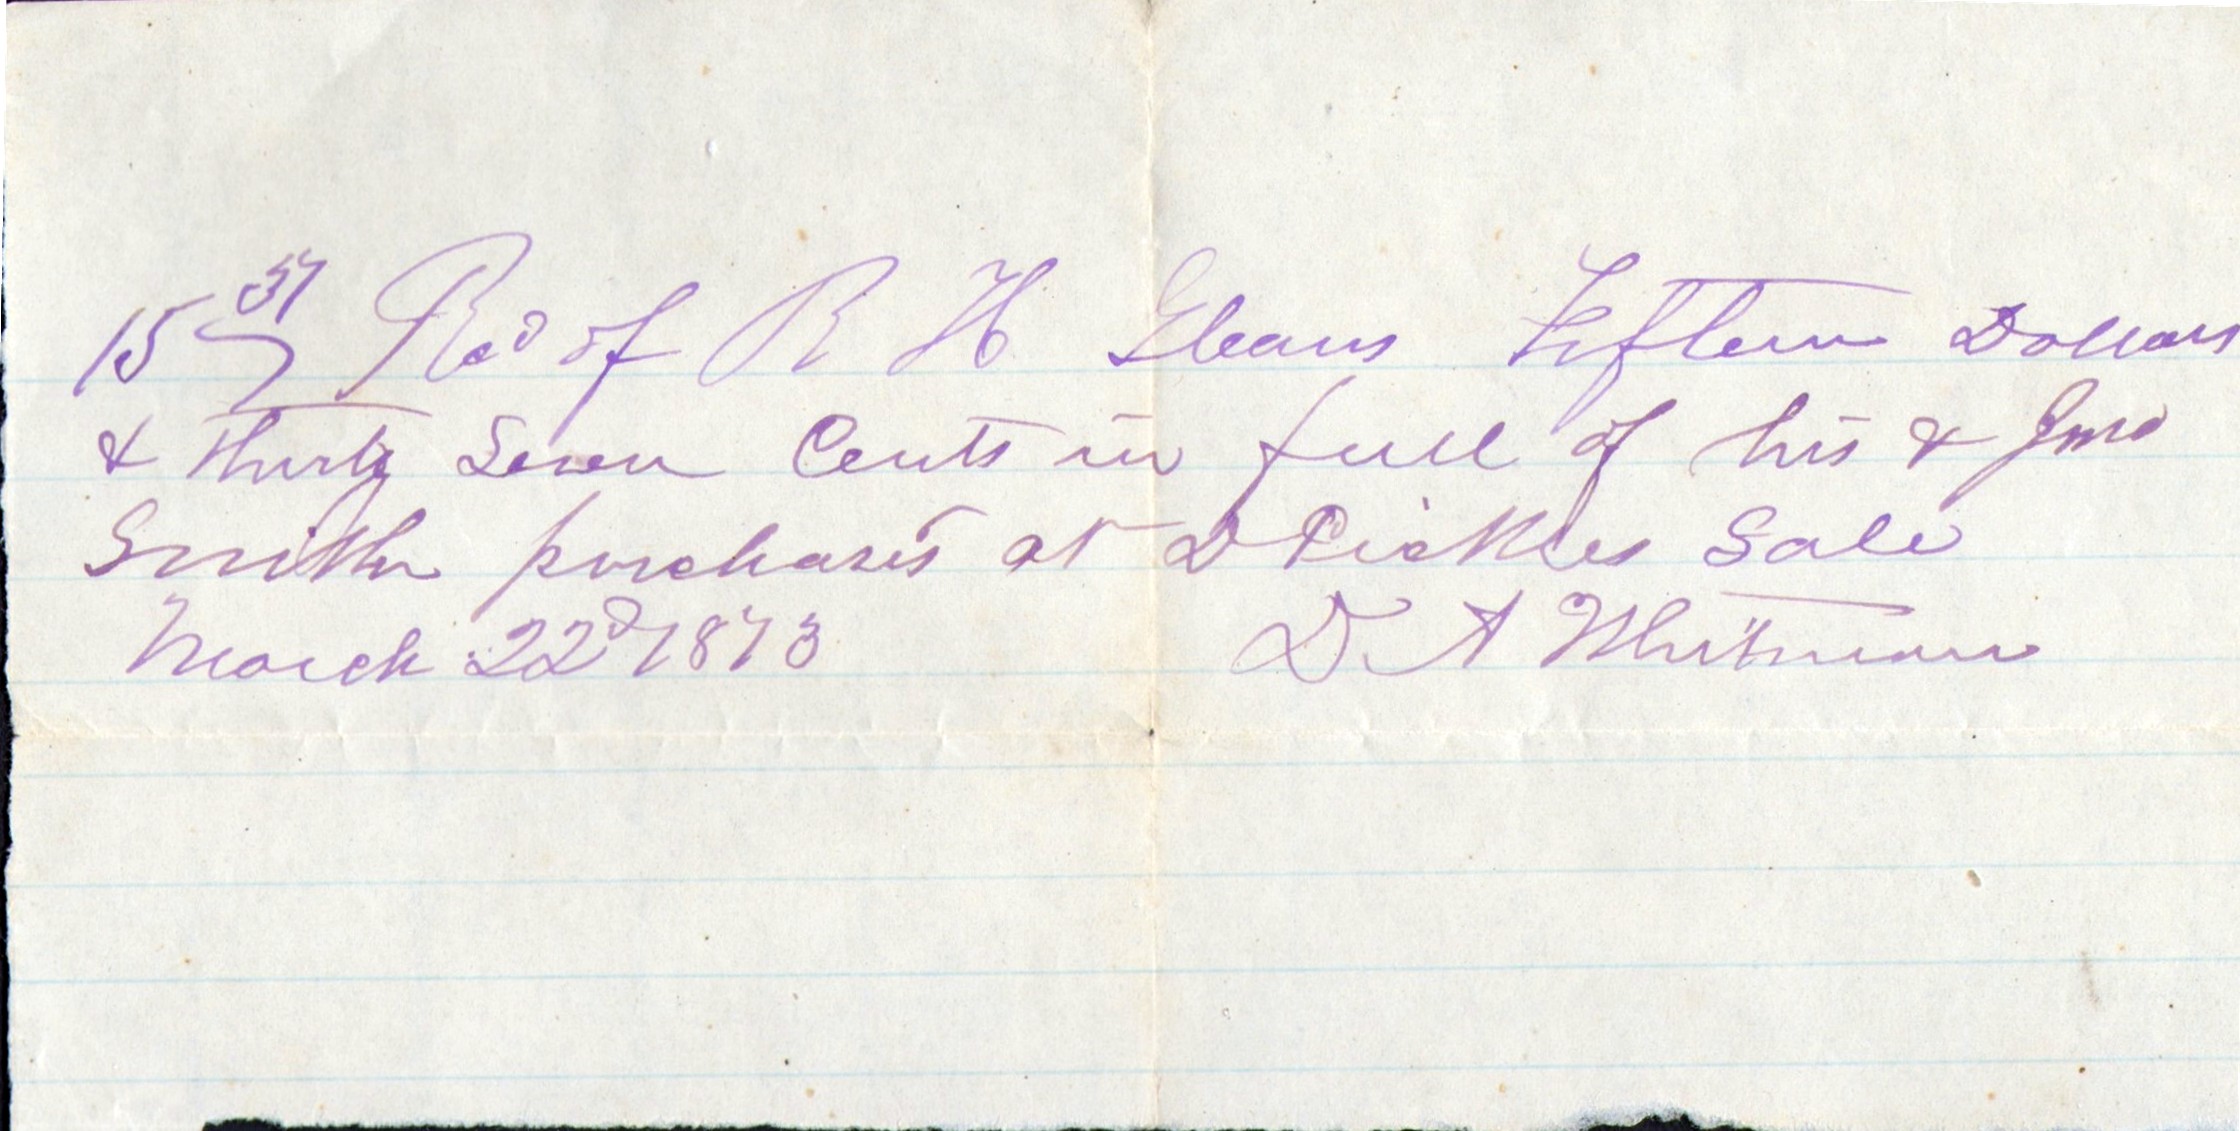 15 37 Recd of R H Gleaus Fifteen Dollars
& Thirty Seven Cents in full of his & Jno
Smith purchases at D Pickles Sale
March 22d 1873 D A Whitman